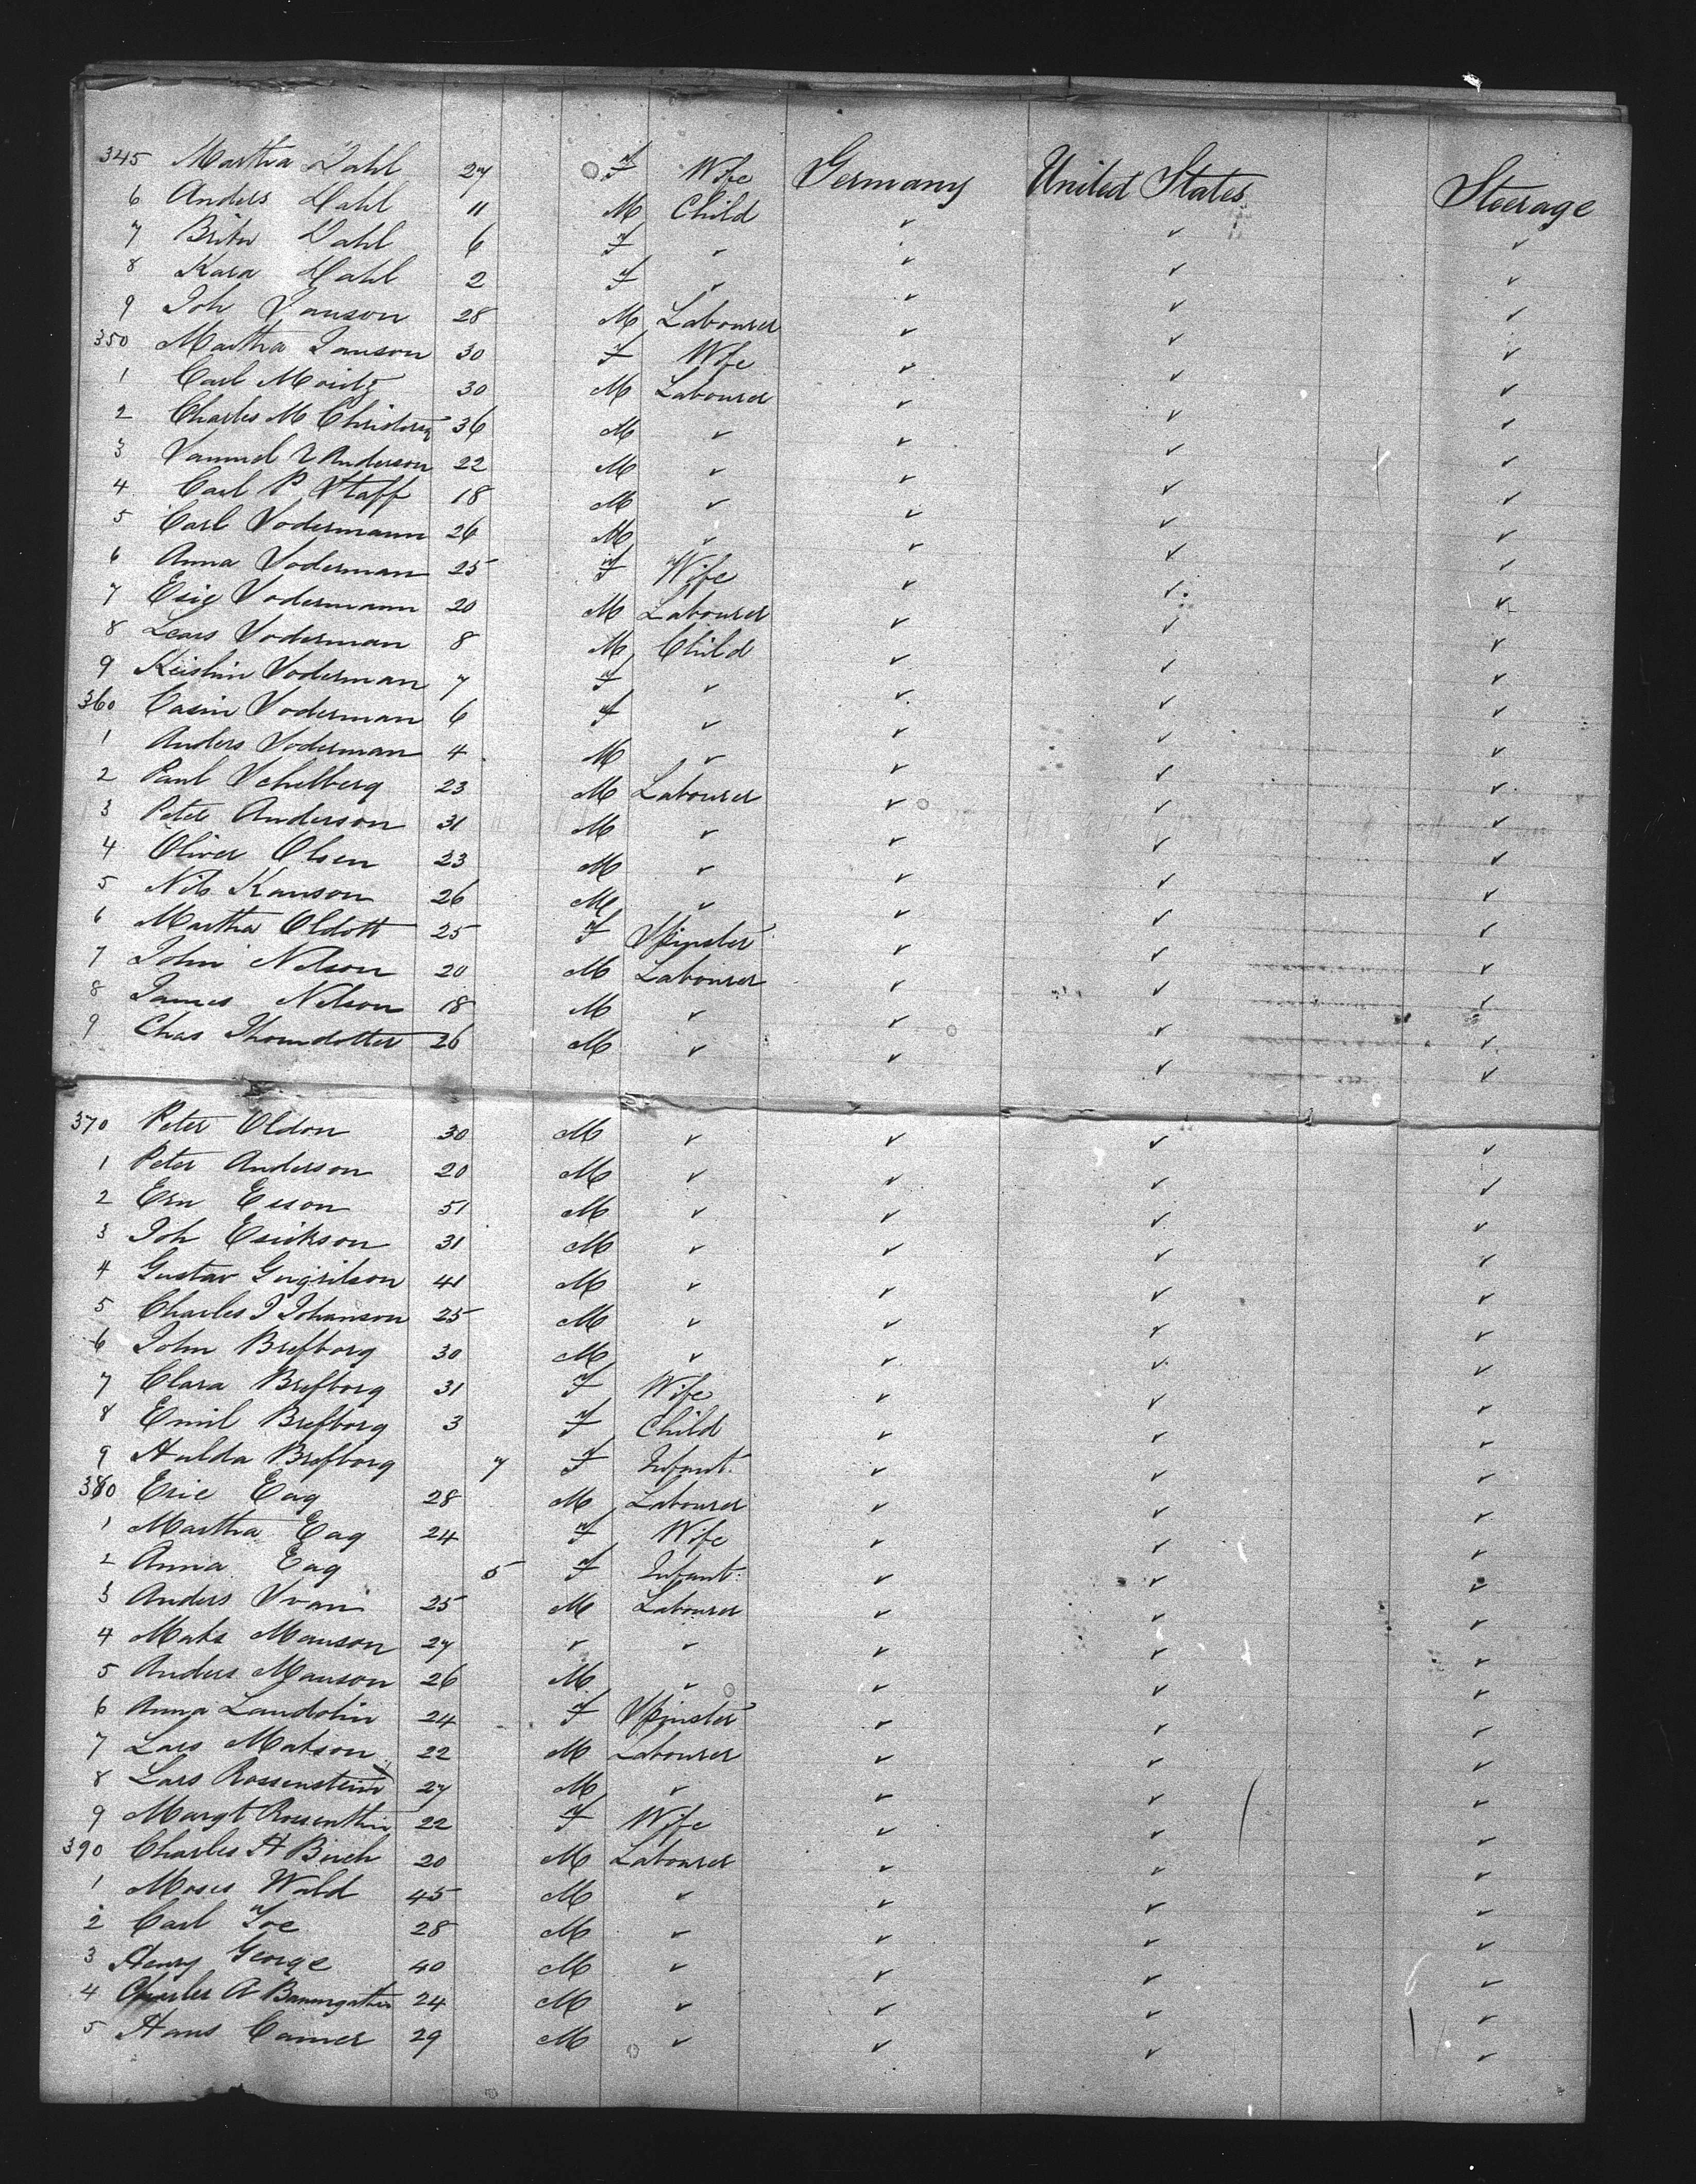 345 Martha Dahl 27 F Wife Germany United States Steerage
6 Anders Dahl 11 M Child ✓ ✓ ✓
7 Brita Dahl 6 F ✓ ✓ ✓ ✓
8 Kara Dahl 2 F ✓ ✓ ✓ ✓
9 Joh Janson 28 M Labourer ✓ ✓ ✓
350 Martha Janson 30 F Wife ✓ ✓ ✓
1 Carl Moritz 30 M Labourer ✓ ✓ ✓
2 Charles M 36 M ✓ ✓ ✓ ✓
3 Samuel Anderson 22 M ✓ ✓ ✓ ✓
4 Carl P. Staff 18 M ✓ ✓ ✓ ✓
5 Carl Sodermann 26 M ✓ ✓ ✓ ✓
6 Anna Soderman 25 F Wife ✓ ✓ ✓
7 Eric Sodermann 20 M Labourer ✓ ✓ ✓
8 Lears Soderman 8 M Child ✓ ✓ ✓
9 Soderman 7 F ✓ ✓ ✓ ✓
360 Carin Soderman 6 F ✓ ✓ ✓ ✓
1 Anders Soderman 4 M ✓ ✓ ✓ ✓
2 Paul Schelberg 23 M Labourer ✓ ✓ ✓
3 Peter Anderson 31 M ✓ ✓ ✓ ✓
4 Oliver Olsen 23 M ✓ ✓ ✓ ✓
5 Nils Kanson 26 M ✓ ✓ ✓ ✓
6 Martha Oldott 25 F Spinster ✓ ✓ ✓
7 John Nelson 20 M Labourer ✓ ✓ ✓
8 James Nelson 18 M ✓ ✓ ✓ ✓
9 Chas Thomdotter 26 M ✓ ✓ ✓ ✓
370 Peter Oldon 30 M ✓ ✓ ✓ ✓
1 Peter Anderson 20 M ✓ ✓ ✓ ✓
2 Ern Erson 51 M ✓ ✓ ✓ ✓
3 Joh Erikson 31 M ✓ ✓ ✓ ✓
4 Gustav 41 M ✓ ✓ ✓ ✓
5 Charles J Johanson 25 M ✓ ✓ ✓ ✓
6 John Brefborg 30 M ✓ ✓ ✓ ✓
7 Clara Brefborg 31 F Wife ✓ ✓ ✓
8 Emil Brefborg 3 F Child ✓ ✓ ✓
9 Hulda Brefborg 7 F Infant ✓ ✓ ✓
380 Eric Eag 28 M Labourer ✓ ✓ ✓
1 Martha Eag 24 F Wife ✓ ✓ ✓
2 Anna Eag 5 F Infant ✓ ✓ ✓
3 Anders Svan 25 M Labourer ✓ ✓ ✓
4 Mats Manson 27 ✓ ✓ ✓ ✓ ✓
5 Anders Manson 26 M ✓ ✓ ✓ ✓
6 Anna Landolin 24 F Spinster ✓ ✓ ✓
7 Lars Matson 22 M Labourer ✓ ✓ ✓
8 Lars Rossenstein 27 M ✓ ✓ ✓ ✓
9 Margt Rossenthin 22 F Wife ✓ ✓ ✓
390 Charles A Birch 20 M Labourer ✓ ✓ ✓
1 Moses Wald 45 M ✓ ✓ ✓ ✓
2 Carl 28 M ✓ ✓ ✓ ✓
3 Henry George 40 M ✓ ✓ ✓ ✓
4 Charles A Baumgather 24 M ✓ ✓ ✓ ✓
5 Hans Camer 29 M ✓ ✓ ✓ ✓